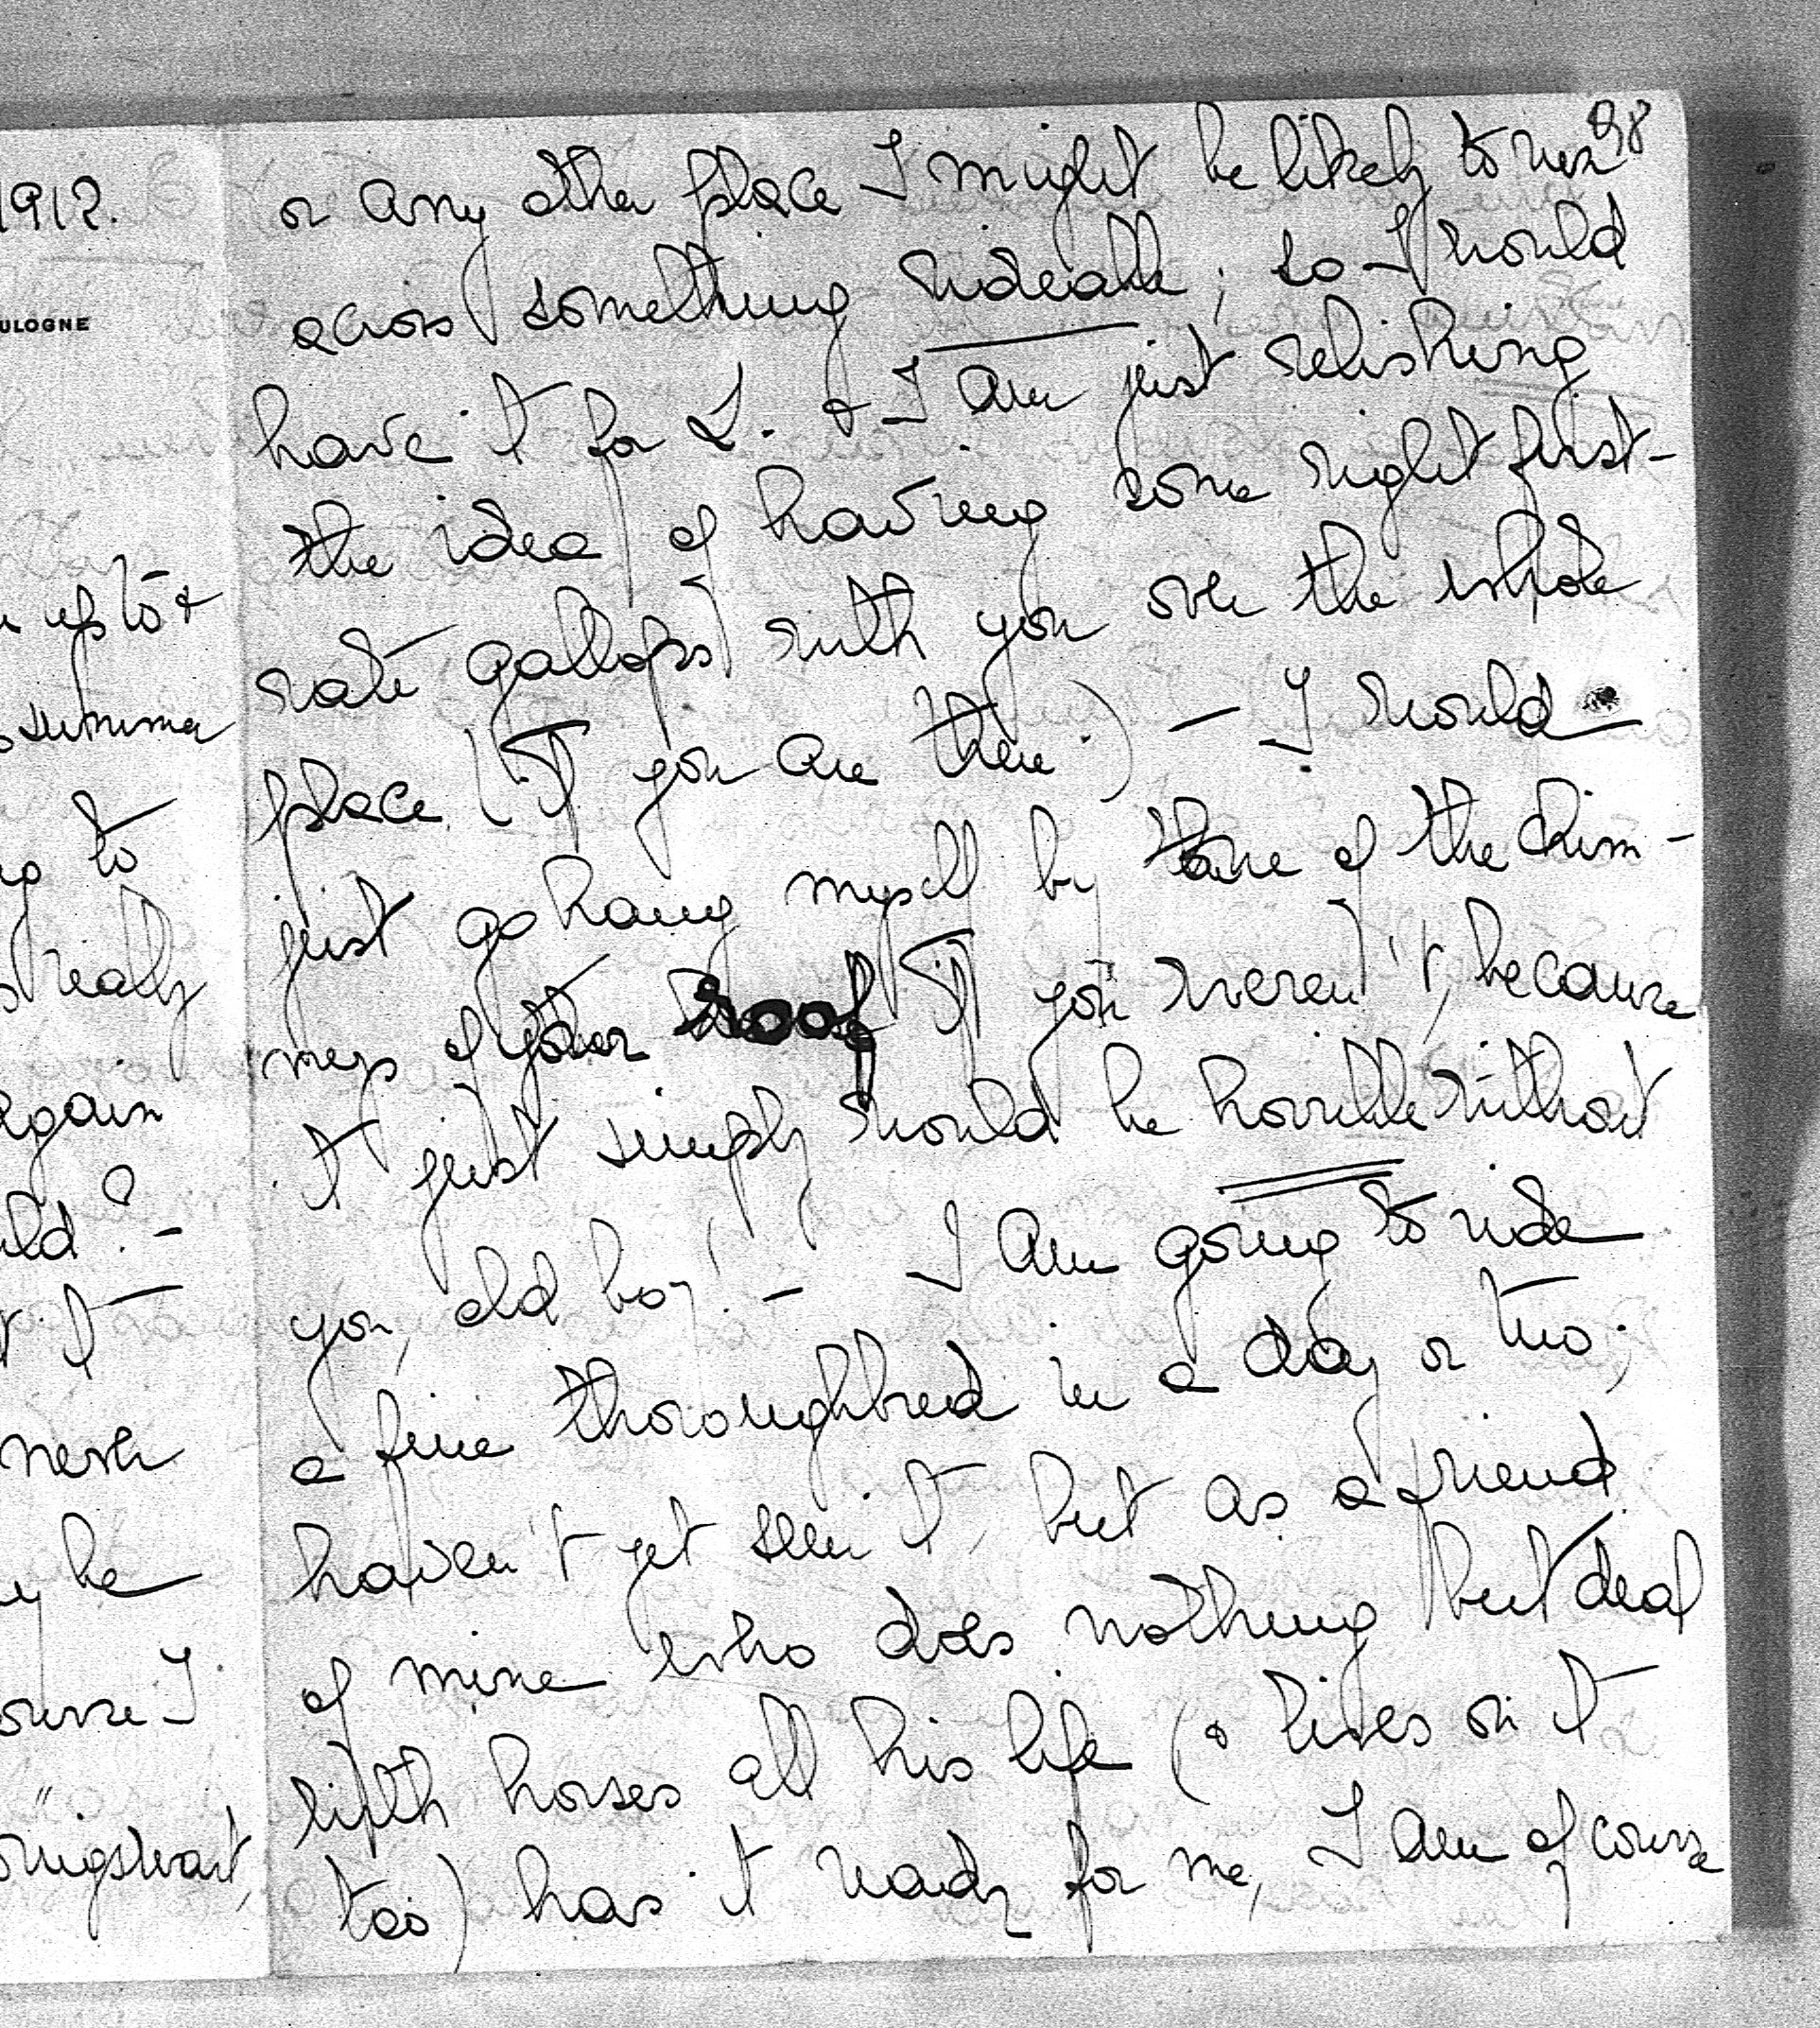 98
1912.
ULOGNE
up to &
summer
to
really
again
uld? -
it
never
be
course I
"
önigswart,
or any other place I might be likely to run
across something rideable; so I would
have it for L. & I am just relishing
the idea of having some right first-
rate gallops with you over the whole
place (if you are there) - I would
just go hang myself by one of the chim-
neys of your roof if you weren't, because
it just simply would be horrible without
you, old boy! - I am going to ride
a fine thoroughbred in a day or two;
haven't yet seen it, but as a friend
of mine who does nothing but deal
with horses all his life (& lives on it
too) has it ready for me, I am of course